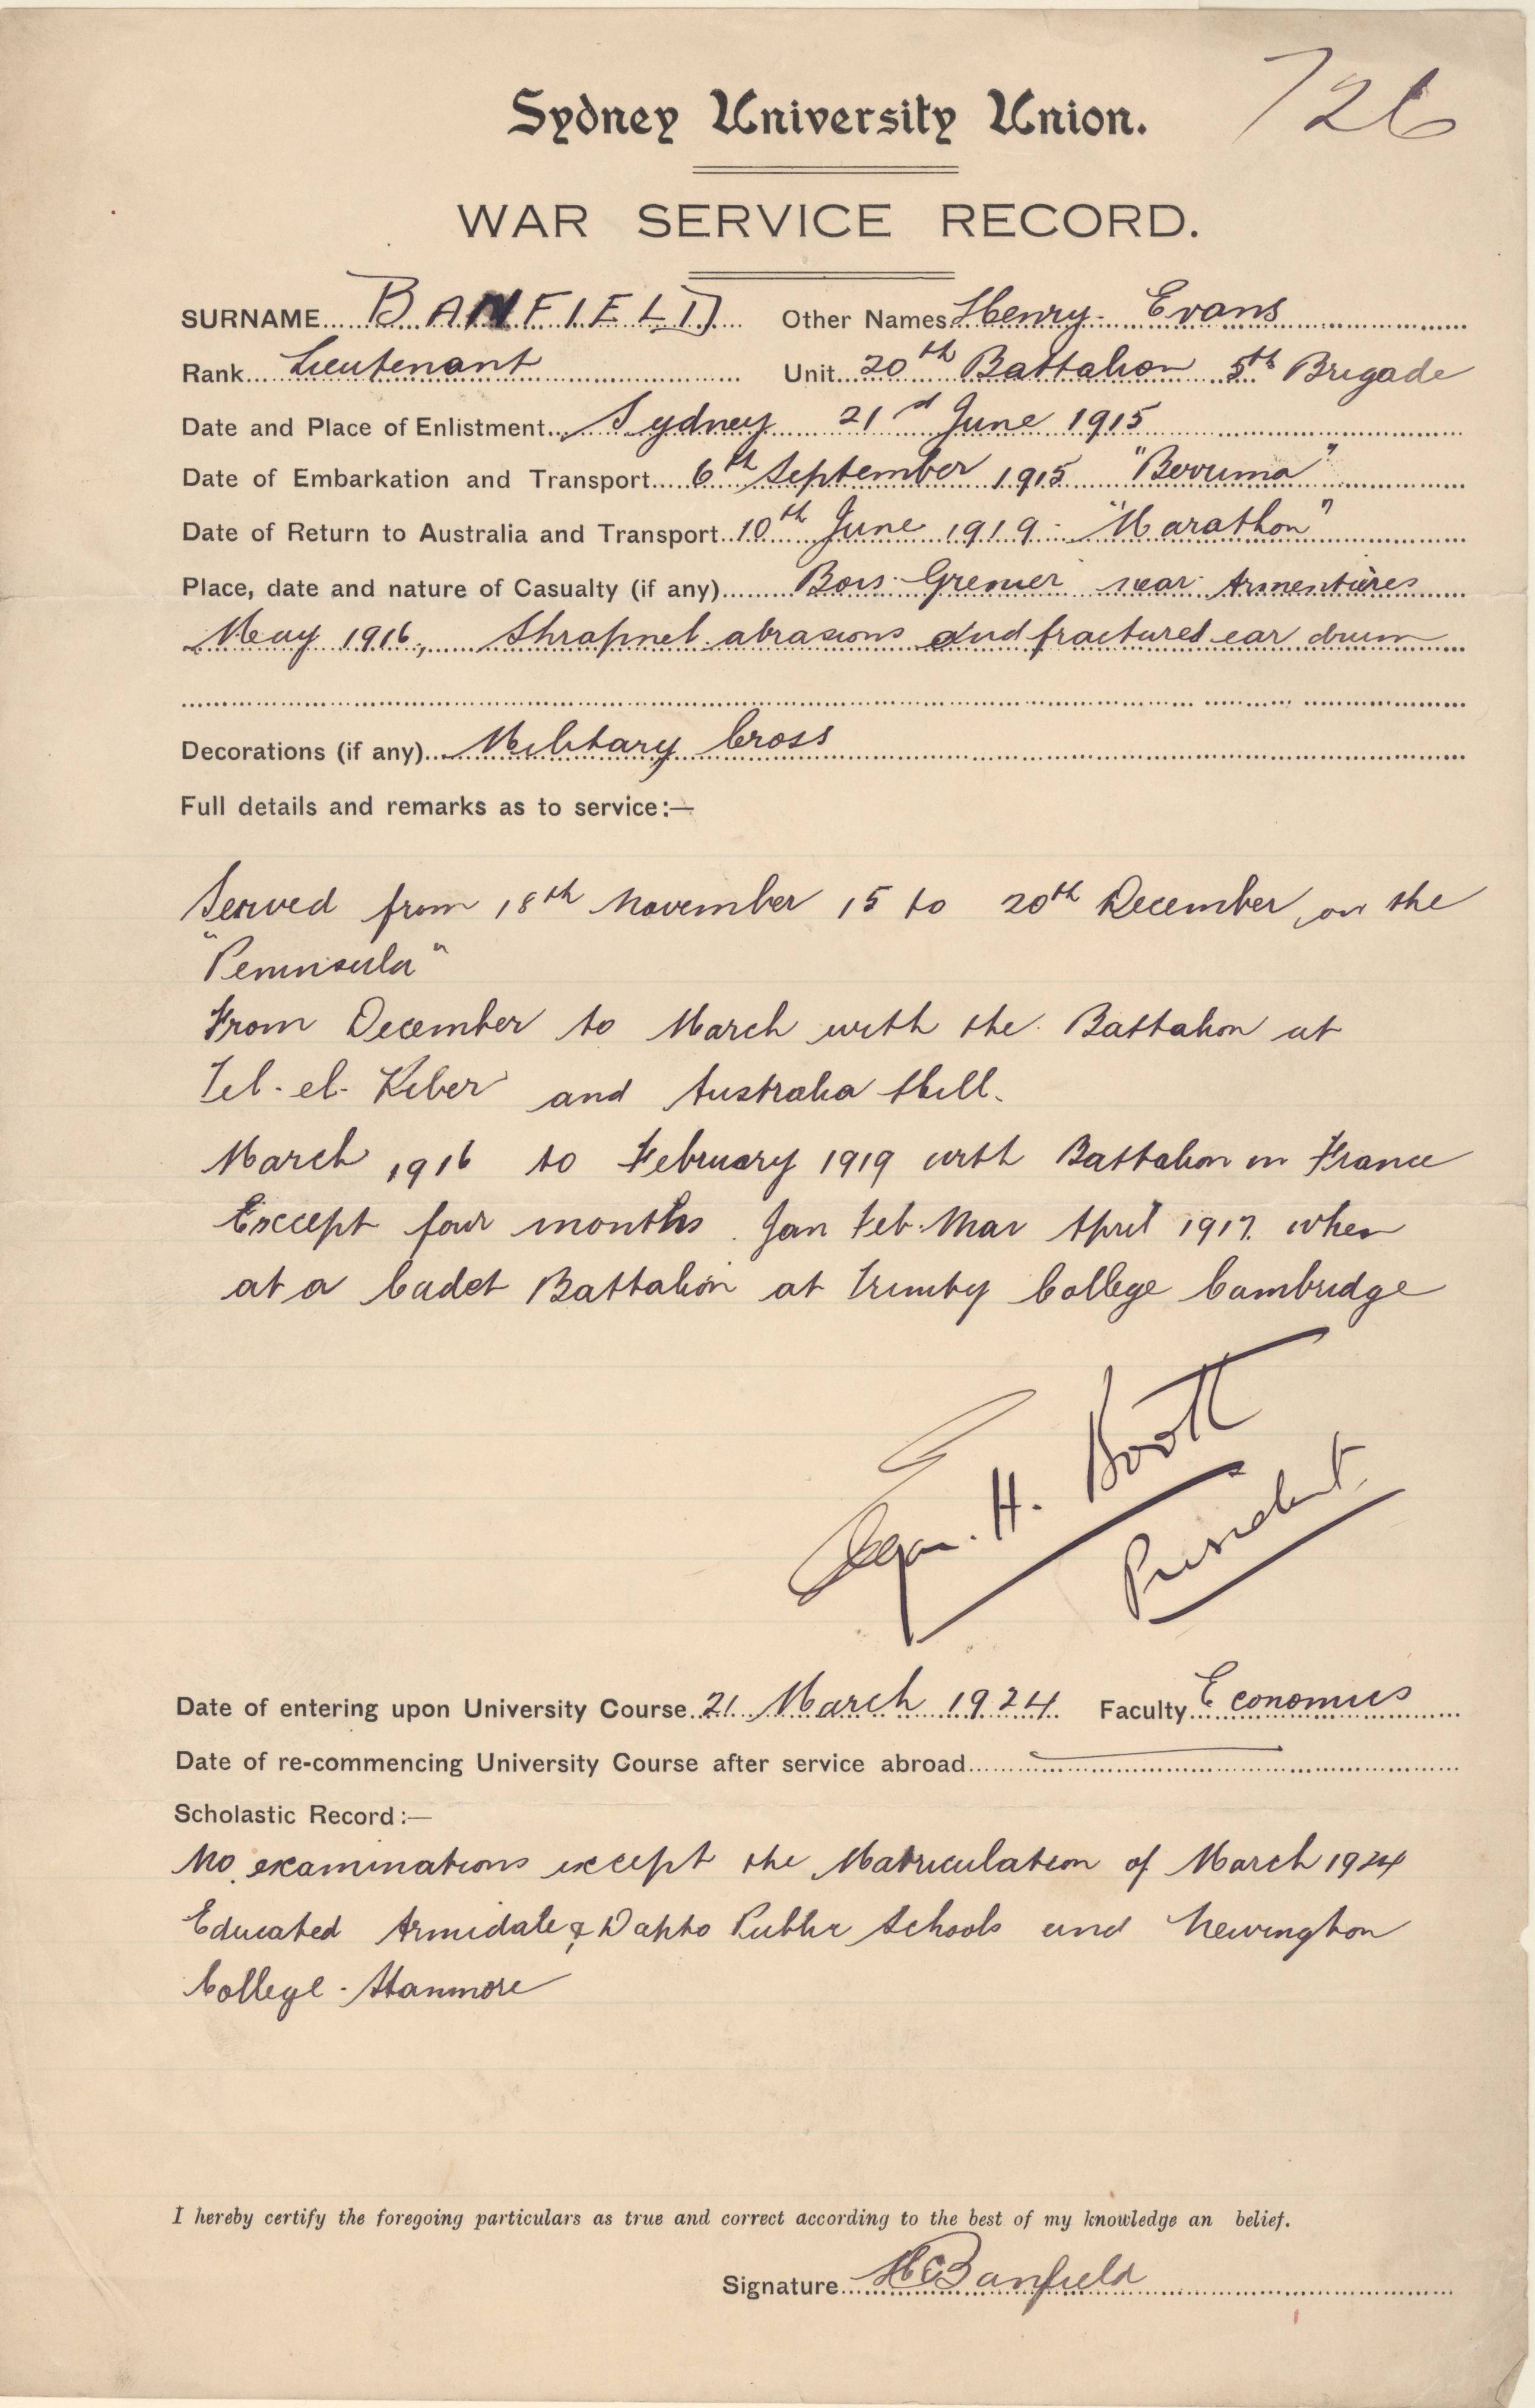 726
Sydney University Union.
WAR SERVICE RECORD.
SURNAME BANFIELD Other Names Henry Evans
Rank Lieutenant Unit 20th Battalion 5th Brigade
Date and Place of Enlistment Sydney 21st June 1915
Date of Embarkation and Transport 6th September 1915 "Beruma"
Date of Return to Australia and Transport 10th June 1919 - "Marathon"
Place, date and nature of Casualty (if any) Bois Grenier near Armentieres
May 1916, Shrapnel abrasions and fractured ear drum
Decorations (if any) Military Cross
Full details and remarks as to service:—
Served from 18th November 15 to 20th December, on the
"Peninsula"
From December to March with the Battalion at
Tel-el-Keber and Australia Hill.
March 1916 to February 1919 with Battalion in France
Except four months Jan Feb Mar April 1917 when
at a Cadet Battalion at Trinity College Cambridge
H. Booth
President
Date of entering upon University Course 21 March 1924 Faculty Economics
Date of re-commencing University Course after service abroad
Scholastic Record:—
No examinations except the Matriculation of March 1924
Educated Armidale & Dapto Public Schools and Newington
College - Stanmore
I hereby certify the foregoing particulars as true and correct according to the best of my knowledge an belief.
Signature HEBanfield